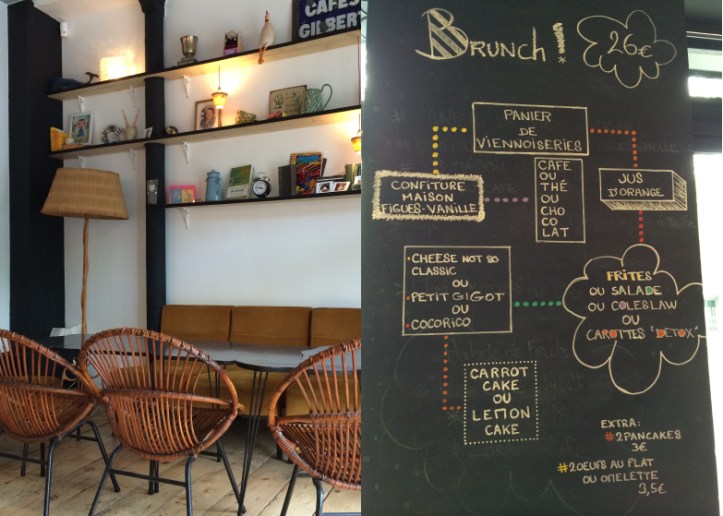 CAFÉS
GILBERT
BRUNCH!
26€
PANIER
DE
VIENNOISERIES
CONFITURE
MAISON
FIGUES-VANILLE
CAFE
OU
THÉ
OU
CHO
CO
LAT
JUS
D'ORANGE
•CHEESE NOT SO
CLASSIC
OU
•PETIT GIGOT
OU
•COCORICO
FRITES
OU SALADE
OU COLESLAW
OU
CAROTTES "DETOX"
CARROT
CAKE
OU
LEMON
CAKE
EXTRA:
#2PANCAKES
3€
#2OEUFS AU PLAT
OU OMELETTE
3,5€